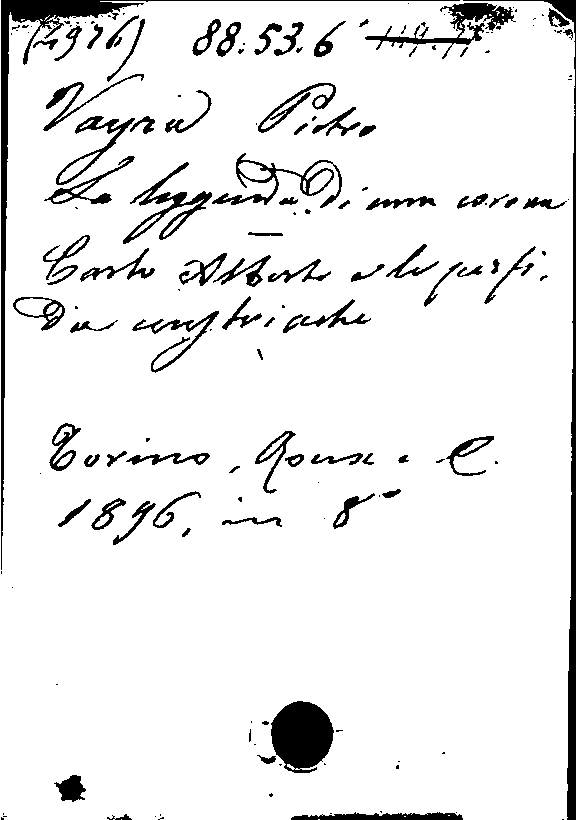 (4976) 88.53.6
Vayra Pietro
La leggenda di una corona
Carlo Alberto e le perfi-
die austriache
Torino, Roux e C.
1896, in 8°